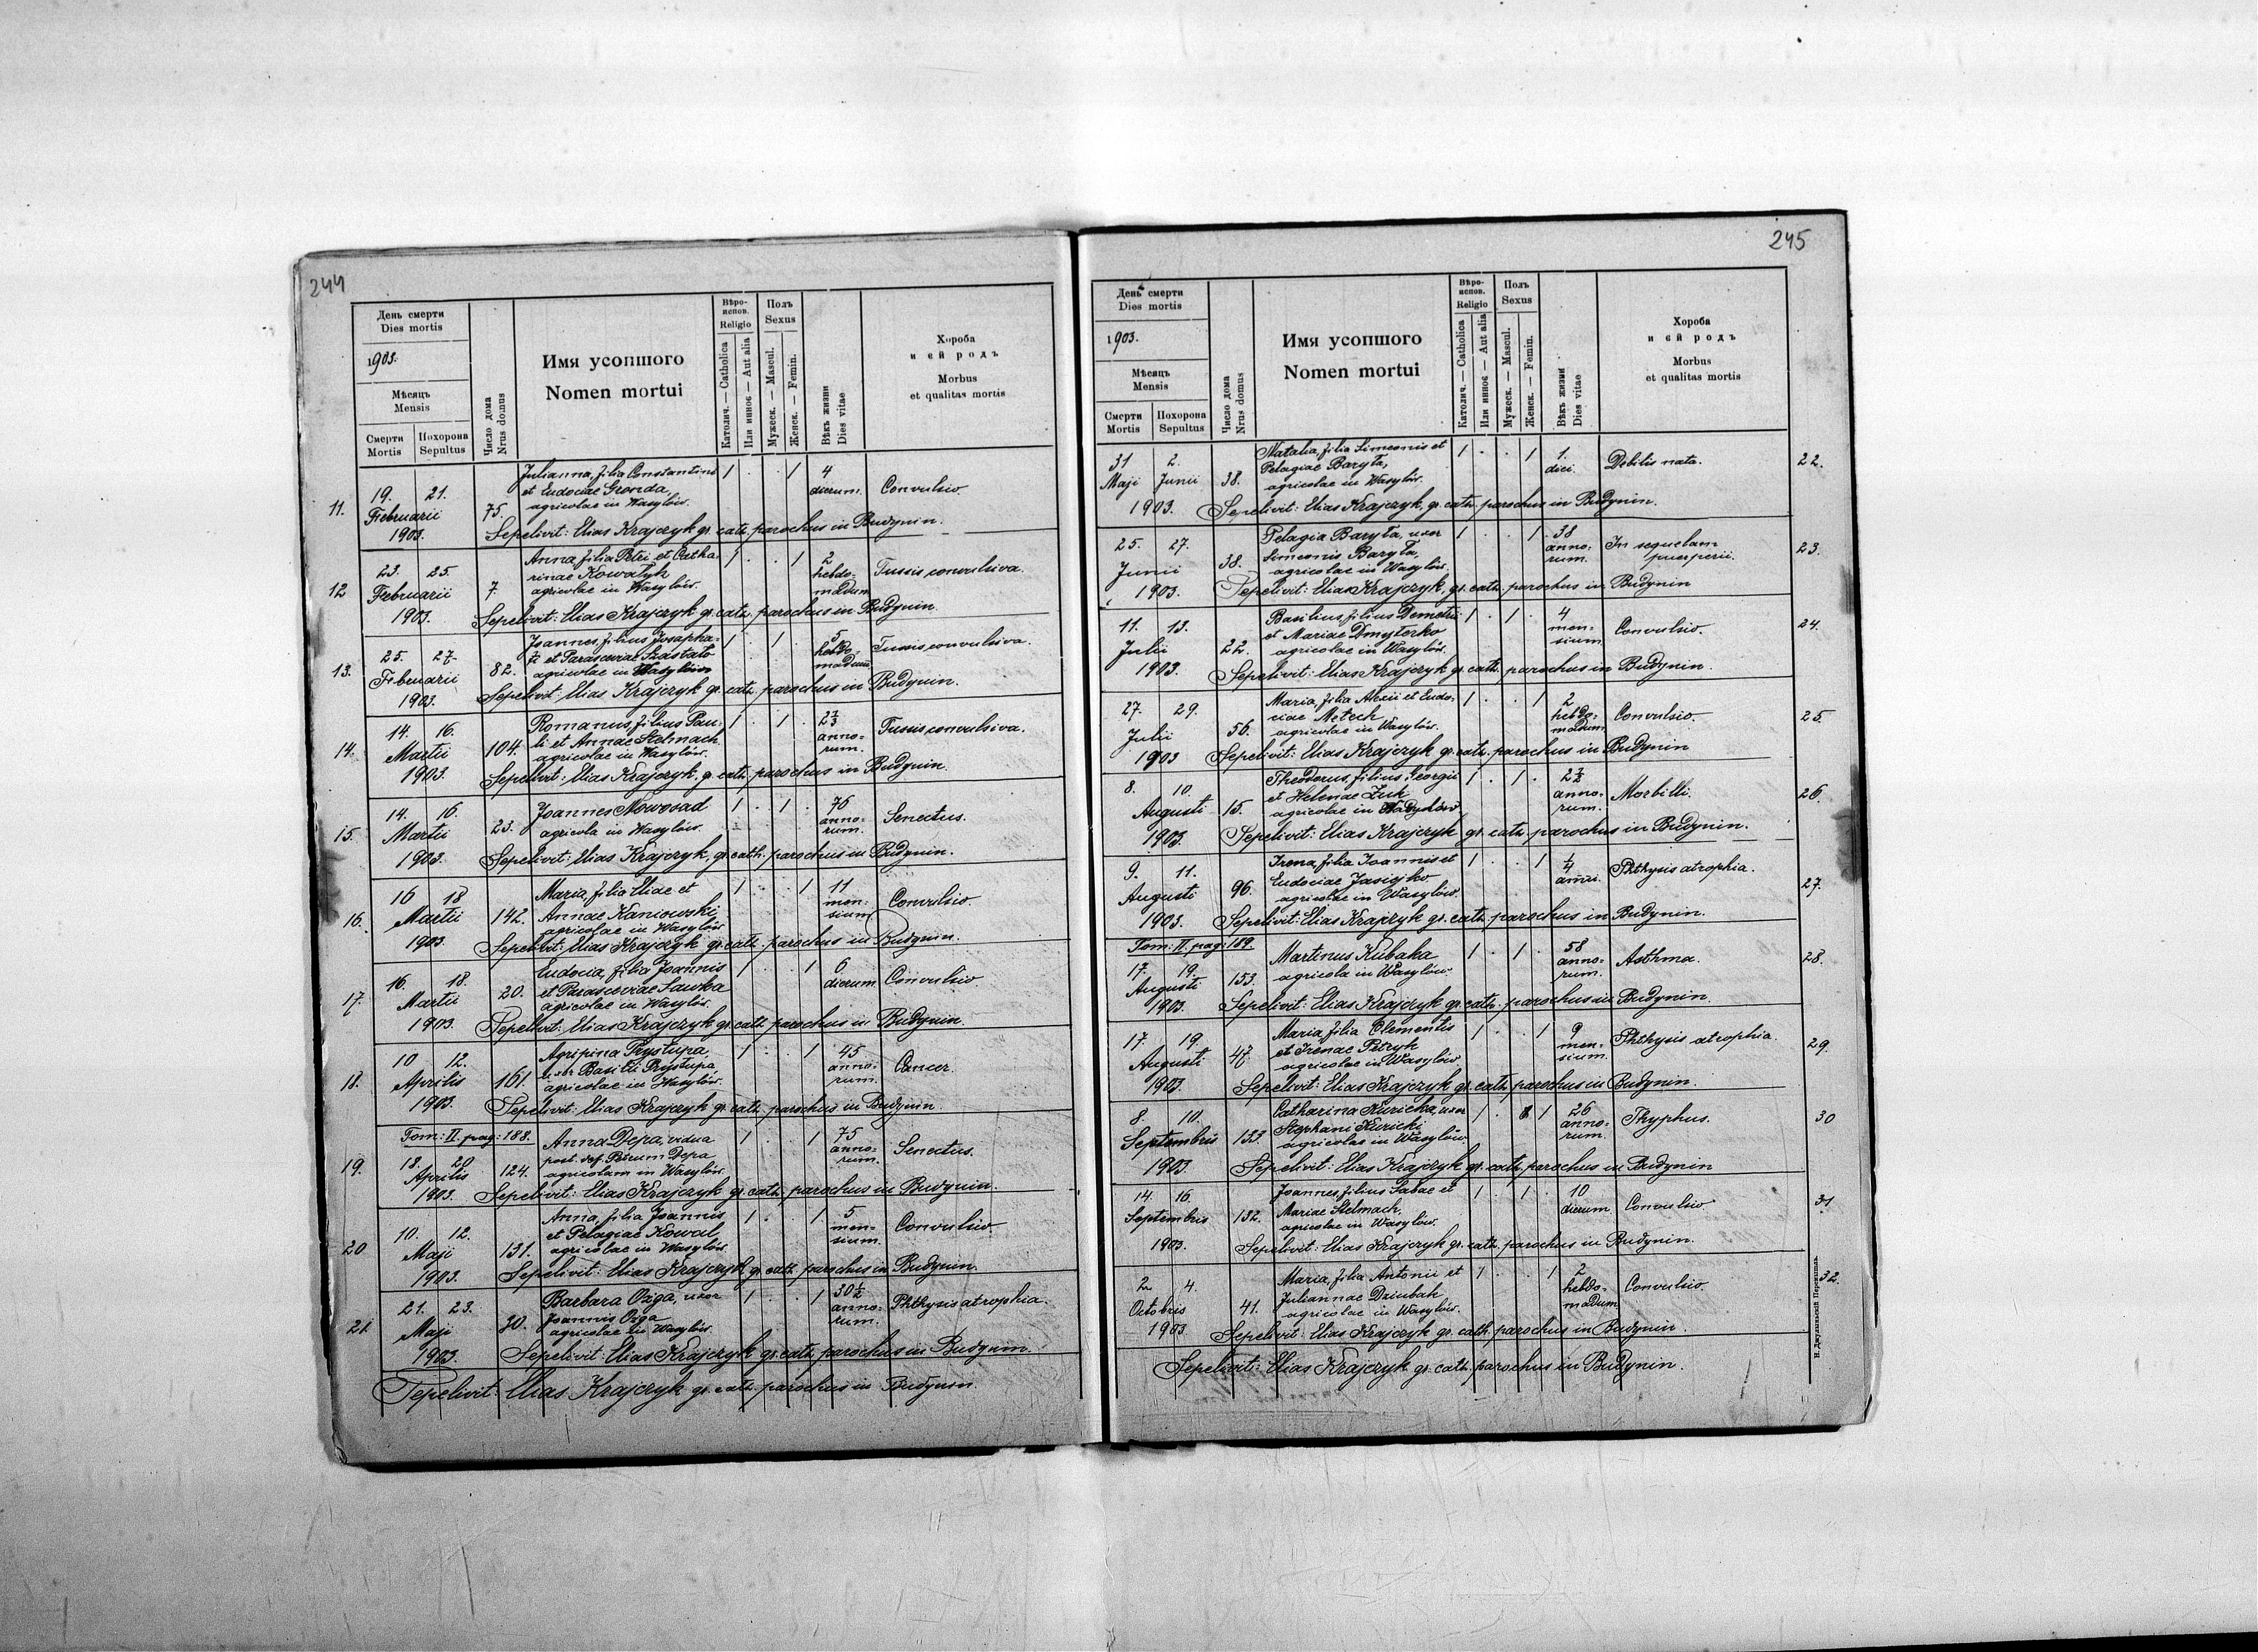 244
День смерти
Dies mortis
1903.
Мѣсяць
Mensis
Смерти
Mortis
Похорона
Sepultus
Число дома
Nrus domus
Имя усопшого
Nomen mortui
Вѣро-
испов.
Religio
Католич. — Catholica
Или инное — Aut alia
Полъ
Sexus
Мужеск. — Mascul.
Женск. — Femin.
Вѣкъ жизни
Dies vitae
Хороба
и ей родъ
Morbus
et qualitas mortis
11. 19. 21. Februarii 1903. 75.
Julianna, filia Constantini
et Eudociae Gronda,
agricolae in Wasylów.
1 . . 1 4 dierum. Convulsio.
Sepelivit: Elias Krajczyk gr. cath. parochus in Budynin.
12 23. 25. Februarii 1903. 7.
Anna, filia Petri et Catha-
rinae Kowalyk
agricolae in Wasylów.
1 . . 1 2 hebdo- madum Tussis convulsiva.
Sepelivit: Elias Krajczyk gr. cath. parochus in Budynin.
13. 25. 27. Februarii 1903. 82.
Joannes, filius Josapha-
ti et Parasceviae Szostato
agricolae in Wasylów
1 . 1 . 5 hebdo- madum Tussis convulsiva.
Sepelivit: Elias Krajczyk gr. cath. parochus in Budynin.
14. 14. 16. Martii 1903. 104.
Romanus, filius Pau-
li et Annae Stelmach
agricolae in Wasylów.
1 . 1 . anno- rum. Tussis convulsiva.
Sepelivit: Elias Krajczyk, gr. cath. parochus in Budynin.
15. 14. 16. Martii 1903. 23.
Joannes Nowosad
agricola in Wasylów.
1 . 1 . 76 anno- rum. Senectus.
Sepelivit: Elias Krajczyk, gr. cath. parochus in Budynin.
16. 16 18 Martii 1903. 142.
Maria, filia Eliae et
Annae Kaniowski
agricolae in Wasylów
1 . . 1 11 men- sium Convulsio.
Sepelivit: Elias Krajczyk gr. cath. parochus in Budynin.
17. 16. 18. Martii 1903. 20.
Eudocia, filia Joannis
et Parasceviae Sawka
agricolae in Wasylów.
1 . . 1 6 dierum Convulsio.
Sepelivit: Elias Krajczyk gr. cath. parochus in Budynin.
18. 10 12. Aprilis 1903. 161.
Agripina Prystupa,
uxor Basilii Prystupa,
agricolae in Wasylów.
1 . . 1 45 anno- rum. Cancer.
Sepelivit: Elias Krajczyk gr. cath. parochus in Budynin.
Tom: II. pag: 188.
19. 18. 20 Aprilis 1903. 124.
Anna Depa, vidua
post. def. Petrum Depa
agricolam in Wasylów.
1 . . 1 75 anno- rum. Senectus.
Sepelivit: Elias Krajczyk gr. cath. parochus in Budynin.
20 10. 12. Maji 1903. 131.
Anna, filia Joannis
et Pelagiae Kowal
agricolae in Wasylów.
1 . . 1 5 men- sium. Convulsio
Sepelivit: Elias Krajczyk gr. cath. parochus in Budynin.
21. 21. 23. Maji 1903. 30.
Barbara Oziga, uxor
Joannis Oziga
agricolae in Wasylów.
1 . . 1 30½ anno- rum. Phthysis atrophia.
Sepelivit: Elias Krajczyk gr. cath. parochus in Budynin.
Sepelivit: Elias Krajczyk gr. cath. parochus in Budynin.
245
День смерти
Dies mortis
1903.
Мѣсяць
Mensis
Смерти
Mortis
Похорона
Sepultus
Число дома
Nrus domus
Имя усопшого
Nomen mortui
Вѣро-
испов.
Religio
Католич. — Catholica
Или инное — Aut alia
Полъ
Sexus
Мужеск. — Mascul.
Женск. — Femin.
Вѣкъ жизни
Dies vitae
Хороба
и ей родъ
Morbus
et qualitas mortis
31 Maji 2. Junii 1903. 38.
Natalia, filia Simeonis et
Pelagiae Baryła,
agricolae in Wasylów.
1 . . 1 1. diei. Debilis nata. 22.
Sepelivit: Elias Krajczyk, gr. cath. parochus in Budynin.
25. 27. Junii 1903. 38.
Pelagia Baryła, uxor
Simeonis Baryła,
agricolae in Wasylów.
1 . . 1 38 anno- rum. In sequelam puerperii. 23.
Sepelivit: Elias Krajczyk, gr. cath. parochus in Budynin
11. 13. Julii 1903. 22.
Basilius, filius Demetrii
et Mariae Dmyterko
agricolae in Wasylów.
1 . 1 . 4 men- sium Convulsio. 24.
Sepelivit: Elias Krajczyk gr. cath. parochus in Budynin.
27. 29. Julii 1903 56.
Maria, filia Alexii et Eudo-
ciae Metech
agricolae in Wasylów.
1 . . 1 2 hebdo- madum Convulsio. 25
Sepelivit: Elias Krajczyk gr. cath. parochus in Budynin
8. 10. Augusti 1903. 15.
Theodorus, filius Georgii
et Helenae Żuk
agricolae in Wasylów
1 . 1 . anno- rum. Morbilli. 26.
Sepelivit: Elias Krajczyk gr. cath. parochus in Budynin.
9. 11. Augusti 1903. 96.
Irena, filia Joannis et
Eudociae Jasiejko
agricolae in Wasylów.
1 . . 1 ¼ anni. Phthysis atrophia. 27.
Sepelivit: Elias Krajczyk gr. cath. parochus in Budynin.
Tom: II. pag: 189.
17. 19. Augusti 1903. 153.
Martinus Kubaka
agricola in Wasylów.
1 . 1 . 58 anno- rum. Asthma. 28.
Sepelivit: Elias Krajczyk gr. cath. parochus in Budynin.
17. 19. Augusti 1903. 47.
Maria, filia Clementis
et Irenae Petryk
agricolae in Wasylów
1 . . 1 9 men- sium. Phthysis atrophia. 29.
Sepelivit: Elias Krajczyk gr. cath. parochus in Budynin.
8 10. Septembris 1903. 133.
Catharina Kuricka, uxor
Stephani Kuricki
agricolae in Wasylów
1 . 1 26 anno- rum. Thyphus. 30
Sepelivit: Elias Krajczyk gr. cath. parochus in Budynin
14. 16. Septembris 1903. 132.
Joannes, filius Sabae et
Mariae Stelmach.
agricolae in Wasylów.
1 . 1 . 10 dierum. Convulsio 31
Sepelivit: Elias Krajczyk gr. cath. parochus in Budynin.
2 4. Octobris 1903. 41.
Maria, filia Antonii et
Juliannae Dziubak
agricolae in Wasylów.
1 . . 1 2 hebdo- madum Convulsio. 32.
Sepelivit: Elias Krajczyk gr. cath. parochus in Budynin.
Sepelivit: Elias Krajczyk gr. cath. parochus in Budynin.
Н. Джулинскій Перемышль